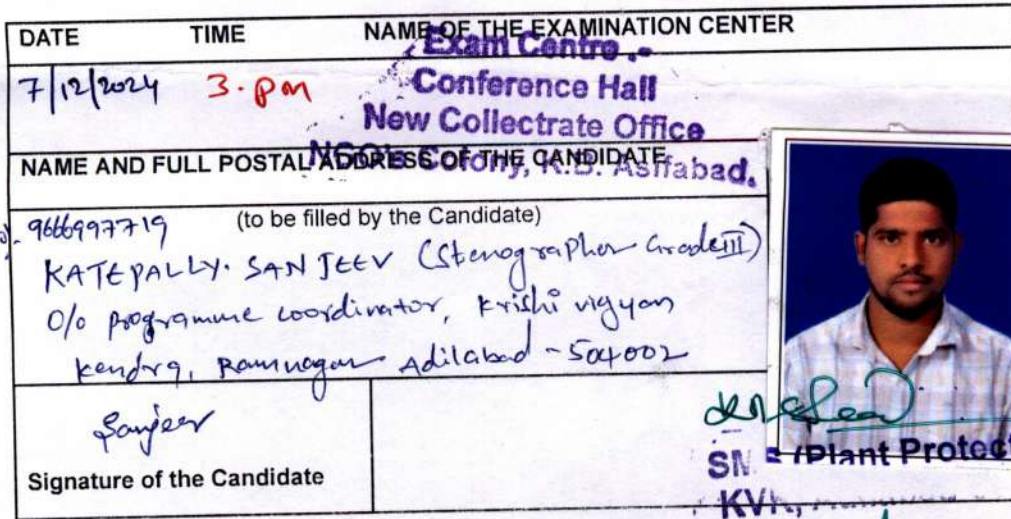 DATE TIME NAME OF THE EXAMINATION CENTER
Exam Centre :-
7/12/2024 3.pm Conference Hall
New Collectrate Office
NGO's Colony, K.B. Asifabad.
NAME AND FULL POSTAL ADDRESS OF THE CANDIDATE
9666997719 (to be filled by the Candidate)
KATEPALLY. SANJEEV (Stenographer Grade III)
O/o programme coordinator, Krishi vigyan
kendra, Ramnagar Adilabad - 504002
Sanjeev
Signature of the Candidate
(Plant Protect
KVK,